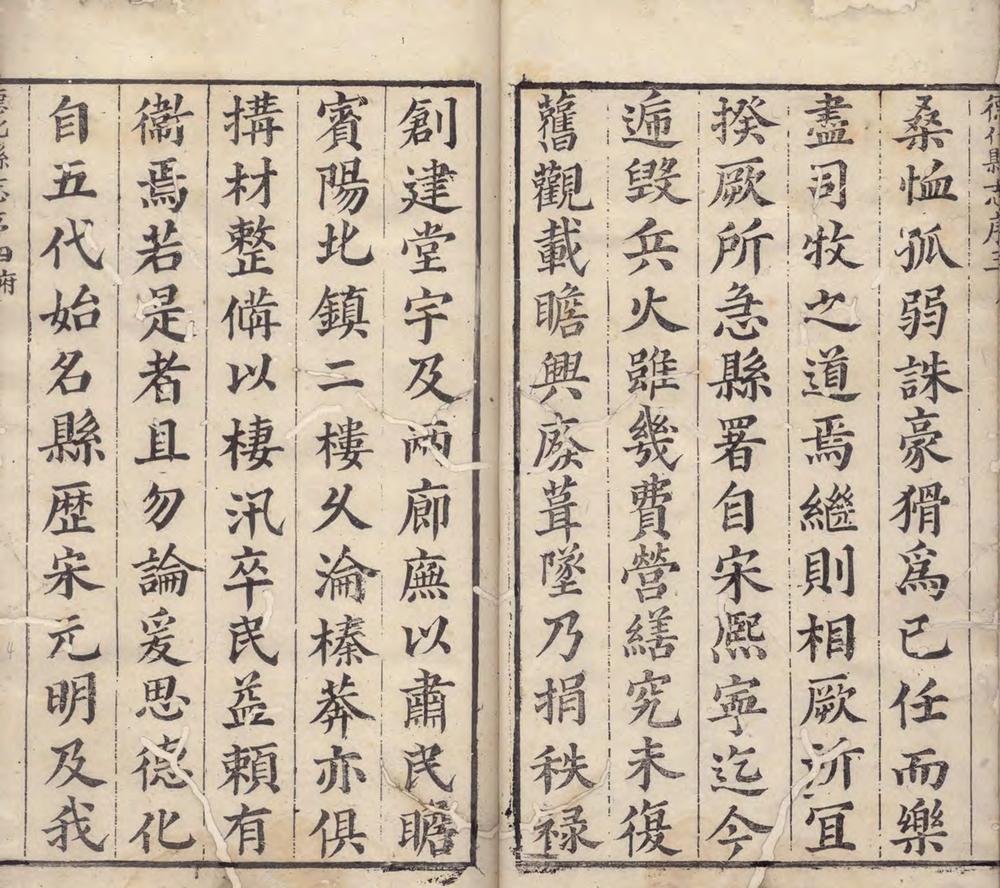 德化縣志序三
桑恤孤弱誅豪猾爲已任而樂
盡司牧之道焉繼則相厥所宜
揆厥所急縣署自宋熈寧迄今
遞毀兵火雖幾費營繕究未復
舊觀載瞻興廢葺墜乃捐秩禄
創建堂宇及兩廊廡以肅民瞻
賓陽北鎮二樓久淪榛莽亦俱
搆材整備以棲汛卒民益賴有
衞焉若是者且勿論爰思德化
自五代始名縣歷宋元明及我
德化縣志序四府